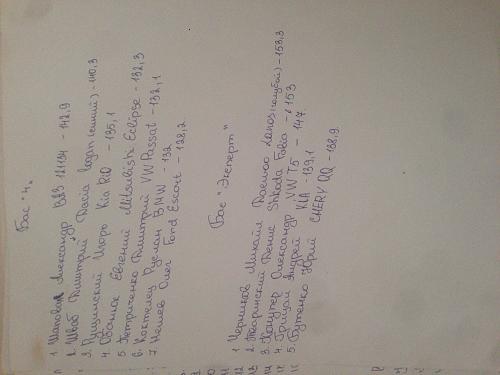 Бас "4"
1 Шаповал Александр ВАЗ 21134 - 142,9
2. Швов Дмитрий Dacia Logan (синий) - 140,3
3. Пушинский Игорь Kia Rio - 135,1
4. Обанюк Евгений Mitsubishi Eclipse - 132,3
5 Петриченко Дмитрий VW Passat - 132,1
6. Коктелец Руслан BMW - 132
7 Нешев Олег Ford Escort - 128,2
Бас "Эксперт"
1 Черников Михайл Daewoo Lanos (голубой) - 153,3
2. Тваринский Денис Shkoda Fabia - 153
3. Олександр VW T5 - 147
4. Грицай Андрей KIA - 139,1
5. Бутенко Юрий CHERY QQ - 138,9